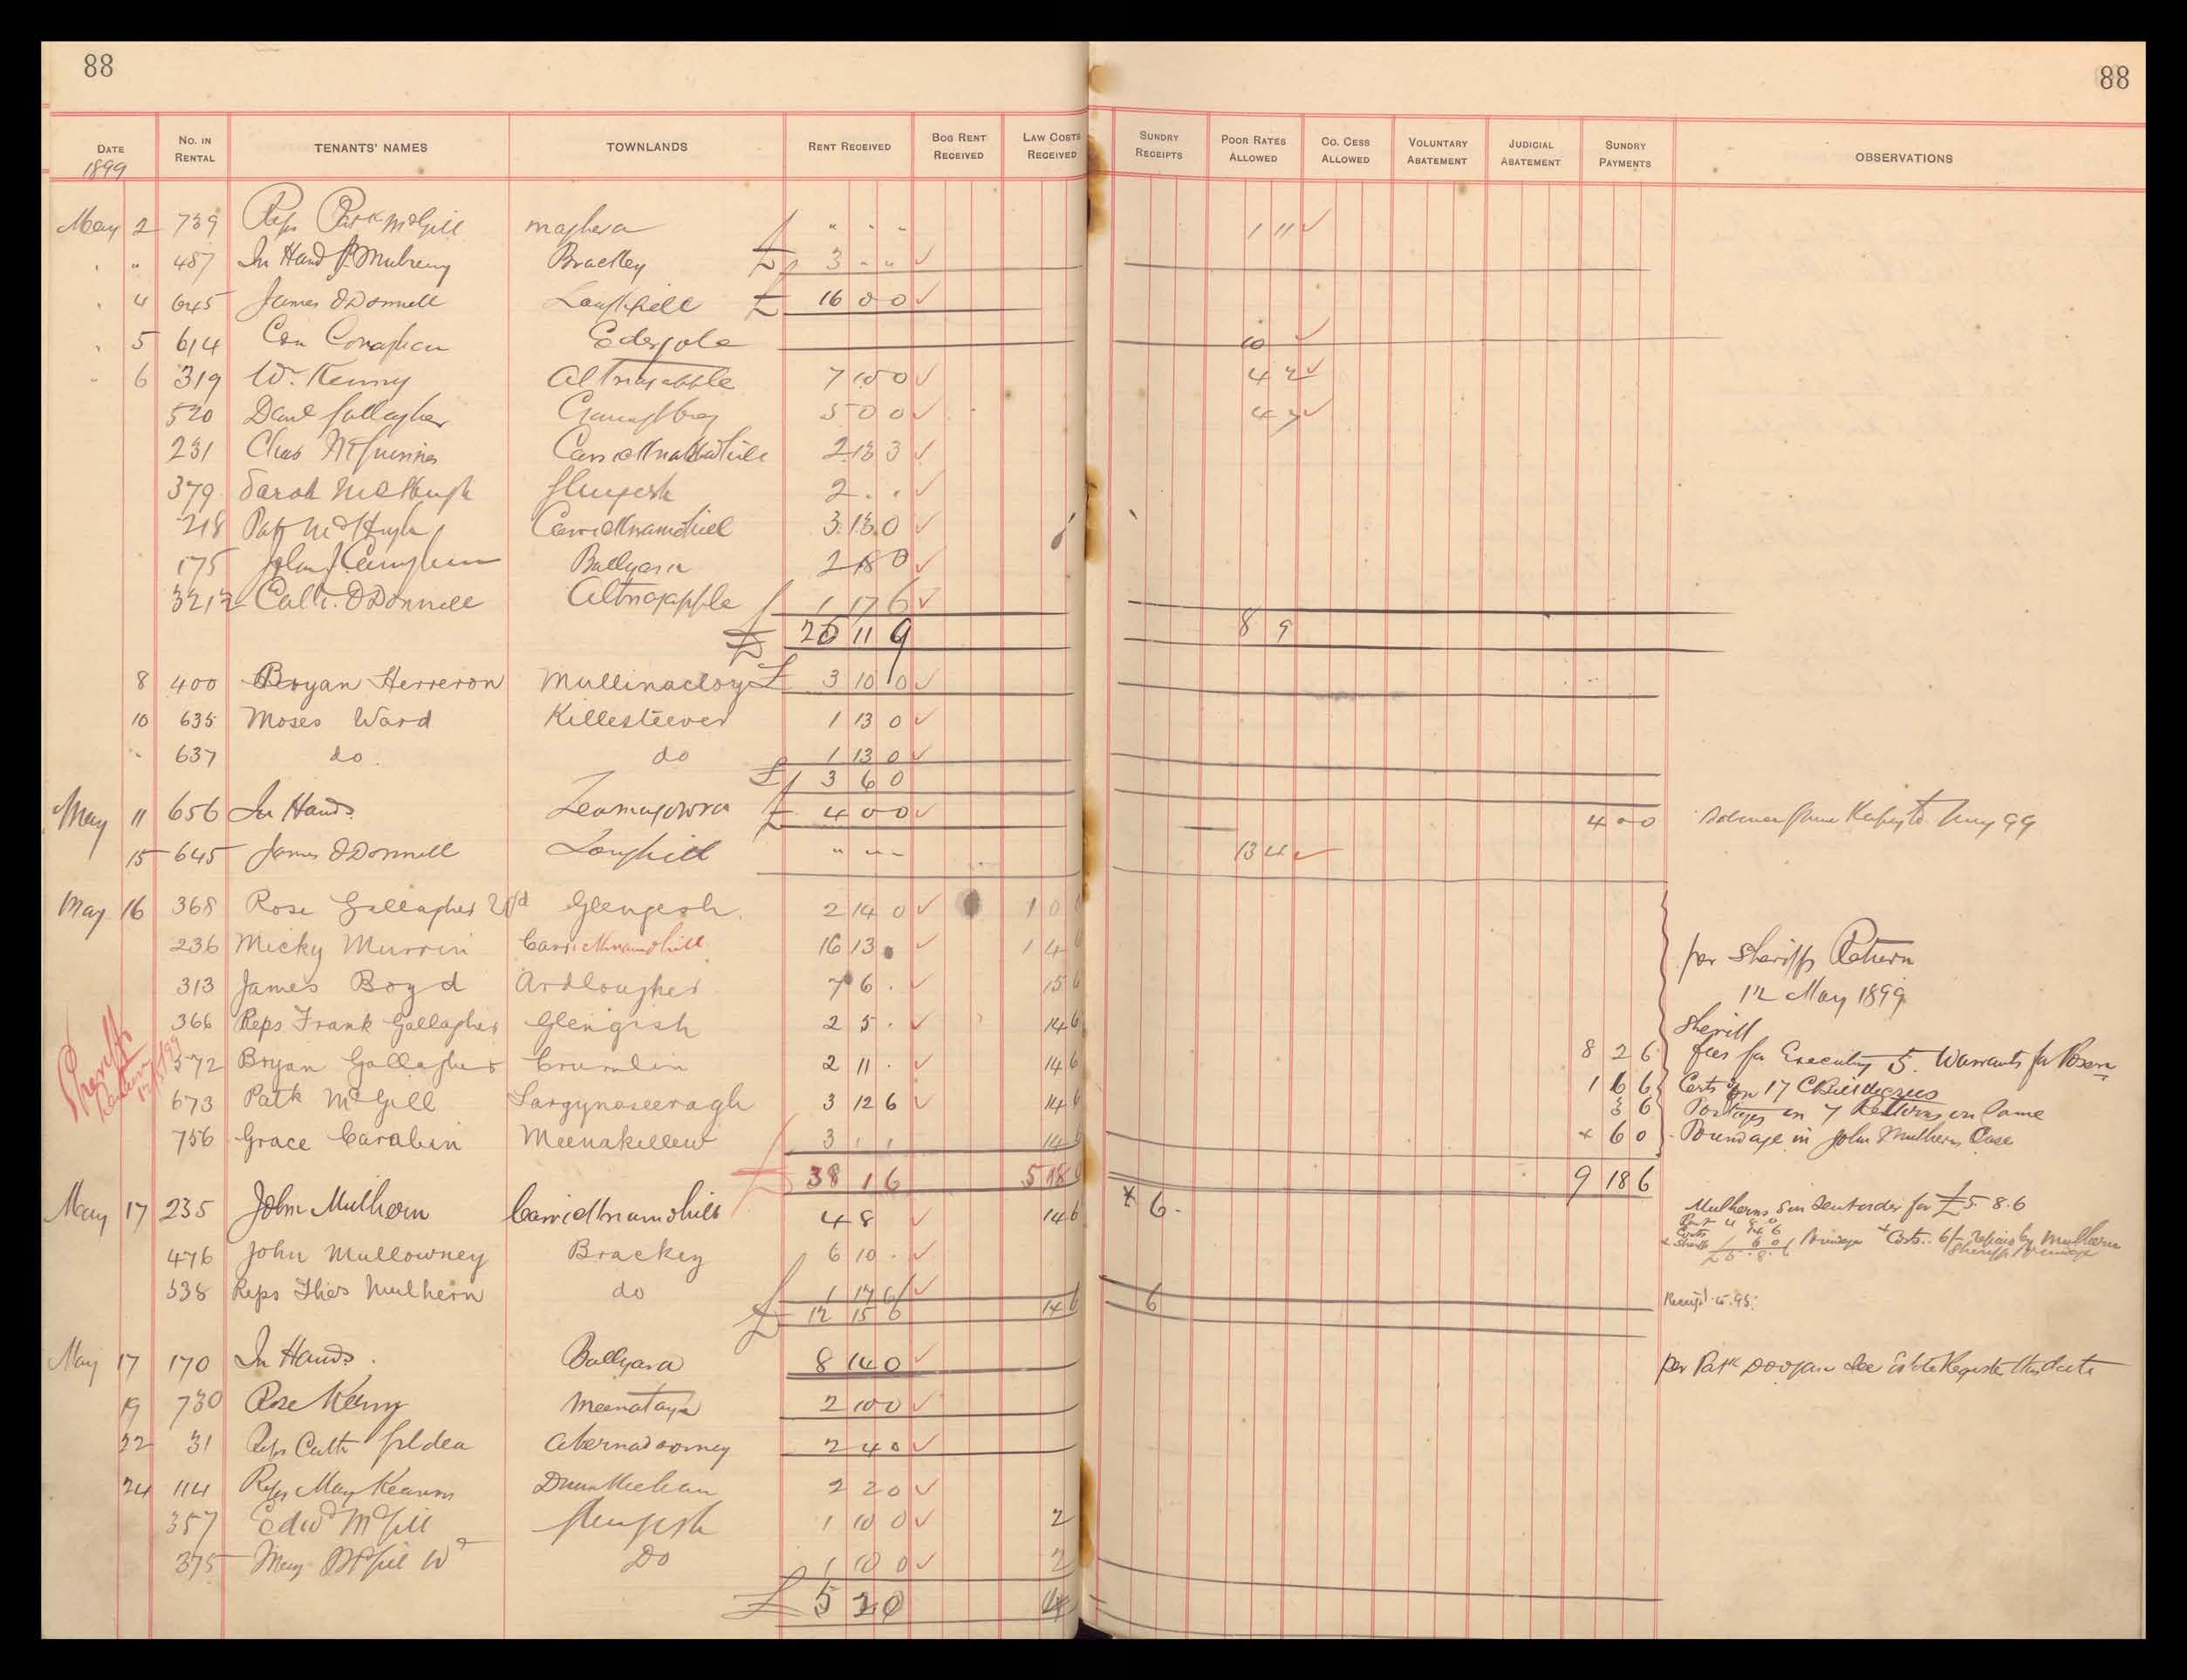 88 88
DATE NO. IN RENTAL TENANTS' NAMES TOWNLANDS RENT RECEIVED BOG RENT RECEIVED LAW COSTS RECEIVED SUNDRY RECEIPTS POOR RATES ALLOWED CO. CESS ALLOWED VOLUNTARY ABATEMENT JUDICIAL ABATEMENT SUNDRY PAYMENTS OBSERVATIONS
1899
May 2 739 Reps Patk McGill maghera " " " 1 11 ✓
" " 487 In Hand Brackey £ 3 " " ✓
" 4 645 James O'Donnell Loughfill £ 16 0 0 ✓
" 5 614 Con Conaghan Edergole 10 ✓
" 6 319 Wm. Kenny Altnagapple 7 10 0 ✓ 4 2 ✓
520 Danl Gallagher 5 0 0 ✓ 4 7 ✓
231 Chas McGuinnes 2 13 3 ✓
379 Sarah McHugh Glengesh 2 . . ✓
218 Pat McHugh Carricknamohill 3 13 0 ✓
175 John Ballyara 2 18 0 ✓
321½ Cath. O'Donnell Altnagapple 1 17 6 ✓
£ 26 11 9 8 9
8 400 Bryan Herreron Mullinacloy £ 3 10 0 ✓
10 635 Moses Ward Killesteever 1 13 0 ✓
" 637 do. do 1 13 0 ✓
£ 3 6 0
May 11 656 In Hands Leamagowra £ 4 0 0 ✓ 4 0 0 May 99
15 645 James O'Donnell Loughill " " " 13 4 ✓
May 16 368 Rose Gallagher Wd Glengesh. 2 14 0 ✓ 1 0
236 Micky Murrin Carricknamohill 16 13 . ✓ 1 4 per Sheriffs Return
313 James Boyd Ardlougher 7 6 . ✓ 15 6 12 May 1899
366 Reps Frank Gallagher Glengish 2 5 . ✓ 14 6 Sheriff
572 Bryan Gallagher Crumlin 2 11 . ✓ 14 6 8 2 6 fees for Executing 5. Warrants for Possn
Sheriffs Return
673 Patk McGill Largynaseeragh 3 12 6 ✓ 14 6 1 6 6 Costs on 17 C Bill
3 6 Postages on 7 Returns on Same
756 Grace Carabin Meenakillew 3 , , 14 6 + 6 0 Poundage in John Mulhern Case
£ 38 1 6 5 18 9 18 6
May 17 235 John Mulhern Carricknamohill 4 8 ✓ 14 6 + 6 . Mulherns Son sent order for £5. 8. 6
476 John Mullowney Brackey 6 10 . ✓
538 Reps Thos Mulhern do 1 17 6 ✓
£ 12 15 6 14 6 6
May 17 170 In Hands. Ballyara 8 14 0 ✓ per Patk Doogan See Estate Register this date
19 730 Rose Kenny Meenataya 2 10 0 ✓
22 31 Reps Cath Gildea 2 4 0 ✓
24 114 Reps Mary Kearns 2 2 0 ✓
357 Edwd McGill Glengesh 1 10 0 ✓ 2
375 Mary McGill Wd Do 1 10 0 ✓ 2
£ 5 2 0 4